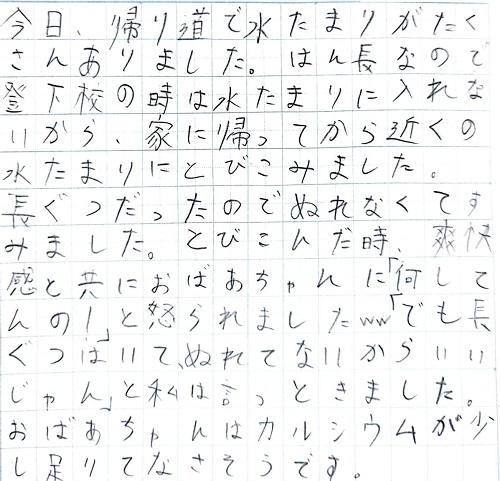 今日、帰り道で水たまりがたく
さんありました。はん長なので
登下校の時は水たまりに入れな
いから、家に帰ってから近くの
水たまりにとびこみました。
長ぐつだったのでぬれなくてす
みました。とびこんだ時、爽快
感と共におばあちゃんに「何して
んの!」と怒られましたww「でも長
ぐつはいて、ぬれてないからいい
じゃん」と私は言っときました。
おばあちゃんはカルシウムが少
し足りてなさそうです。